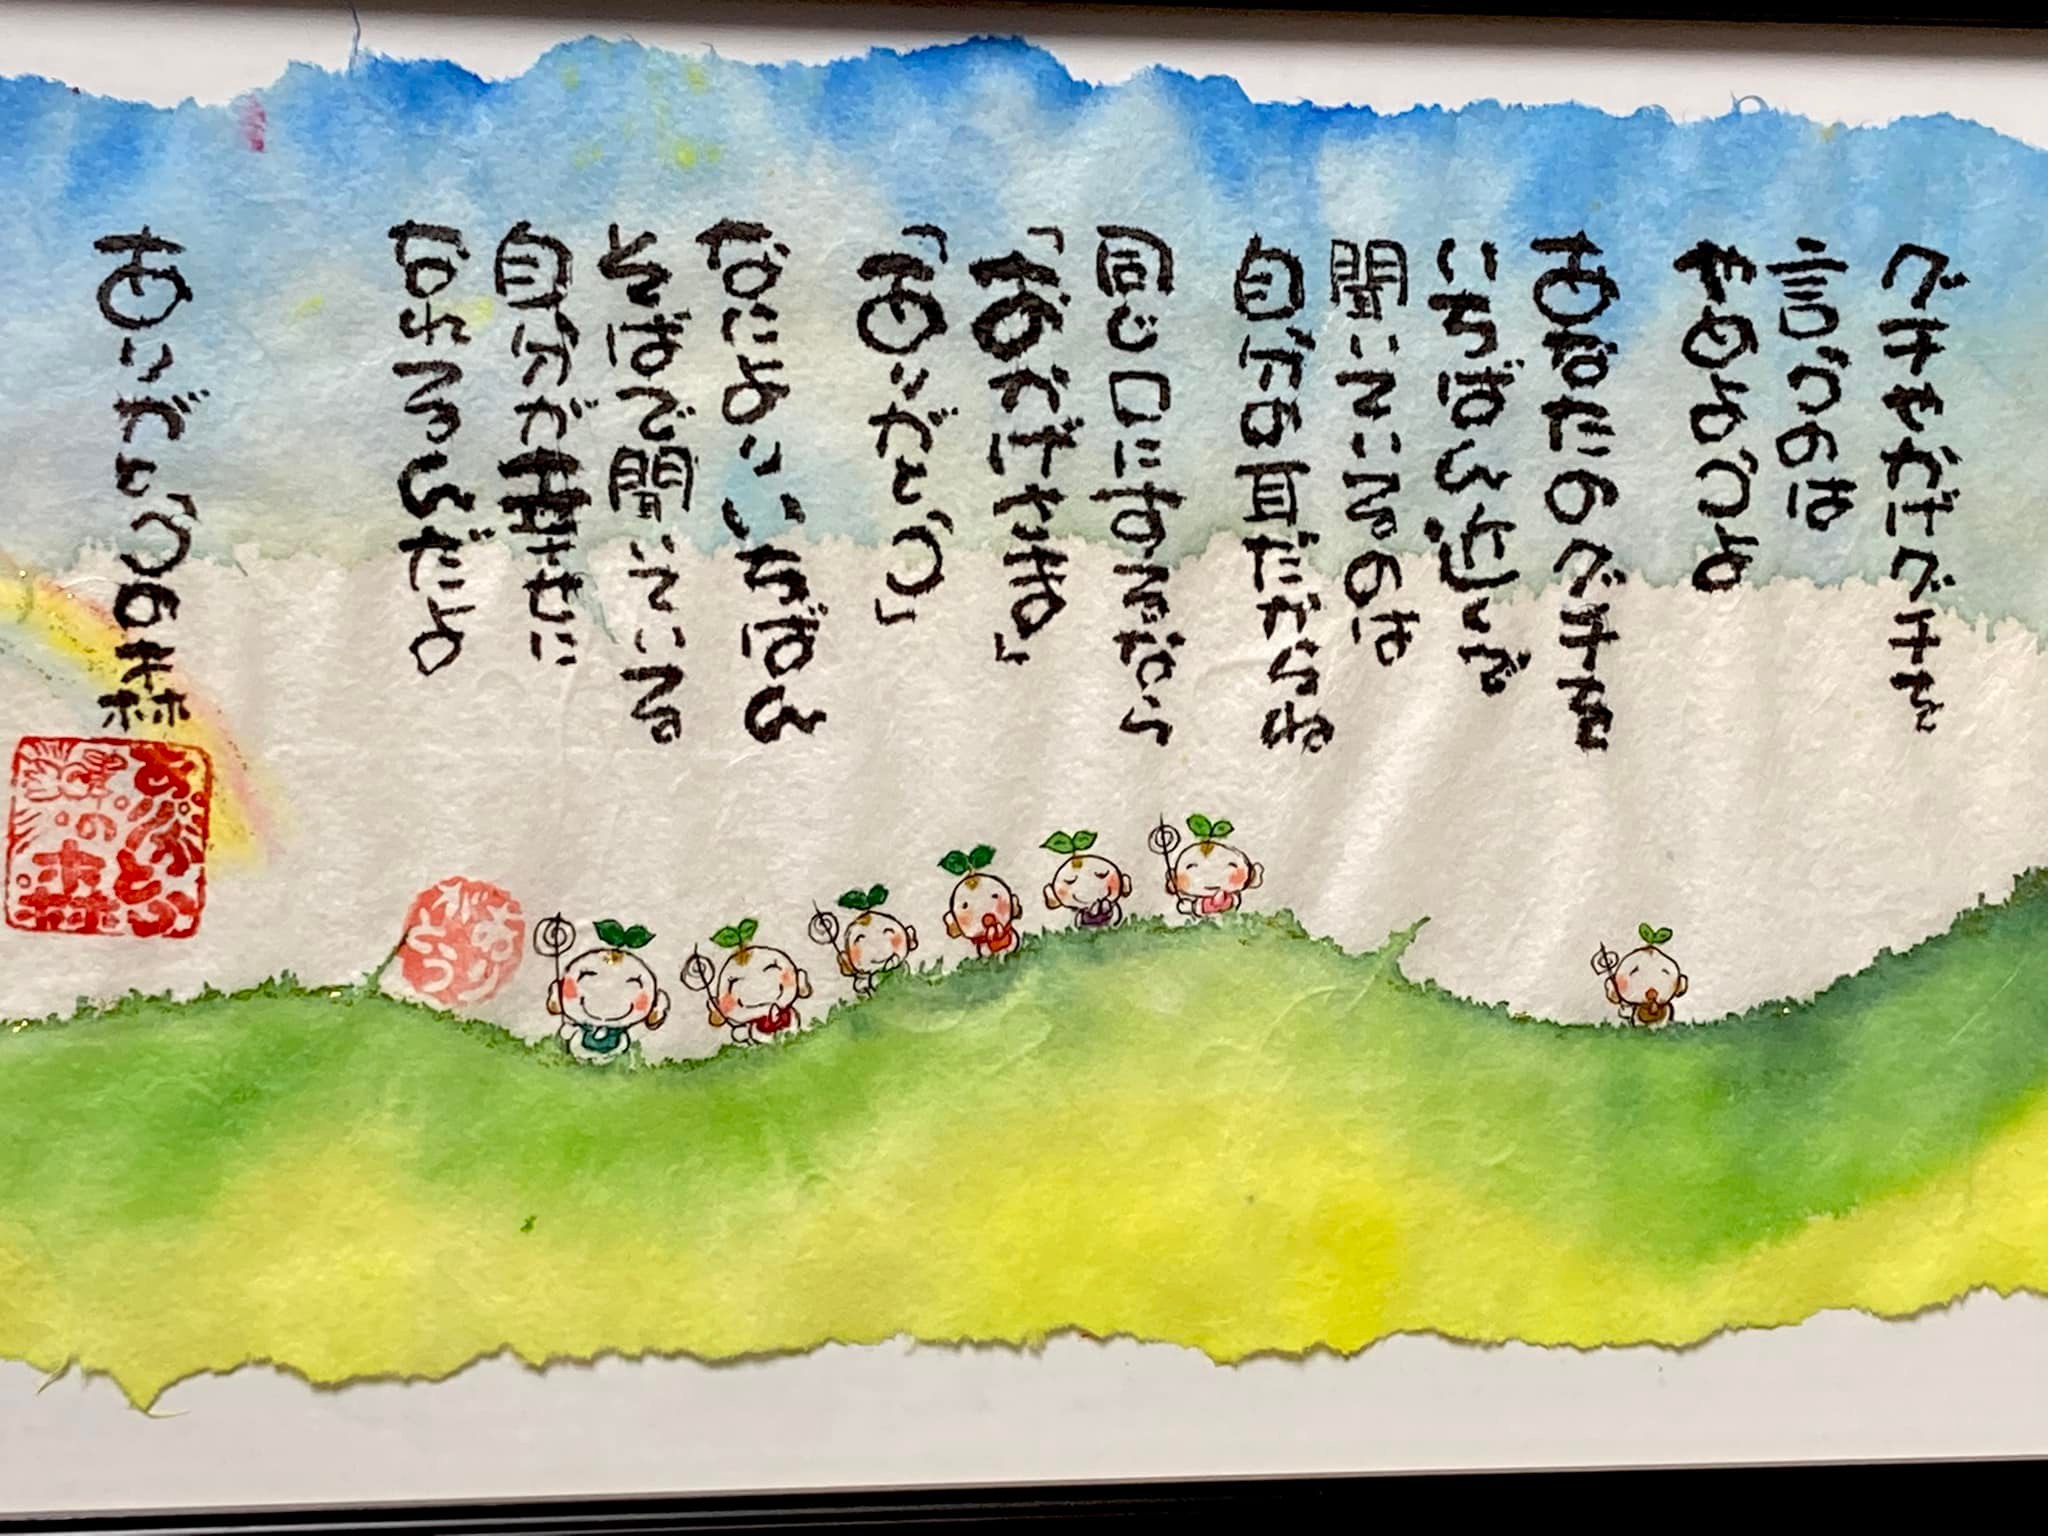 グチやかげグチを
言うのは
やめようよ
あなたのグチを
いちばん近いで
聞いているのは
自分の耳だからね
同じ口にするなら
「おかげさま」
「ありがとう」
なによりいちばん
そばで聞いている
自分が幸せに
なれるんだよ
ありがとうの森
ありがとう
の森
ありがとう